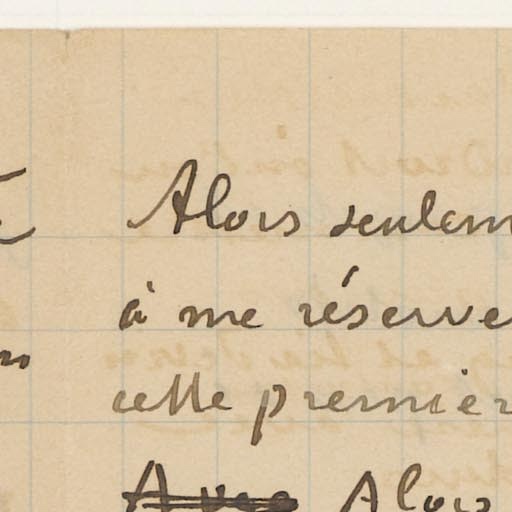 Alors seulem
à me réserve
cette premier
Avec Alors